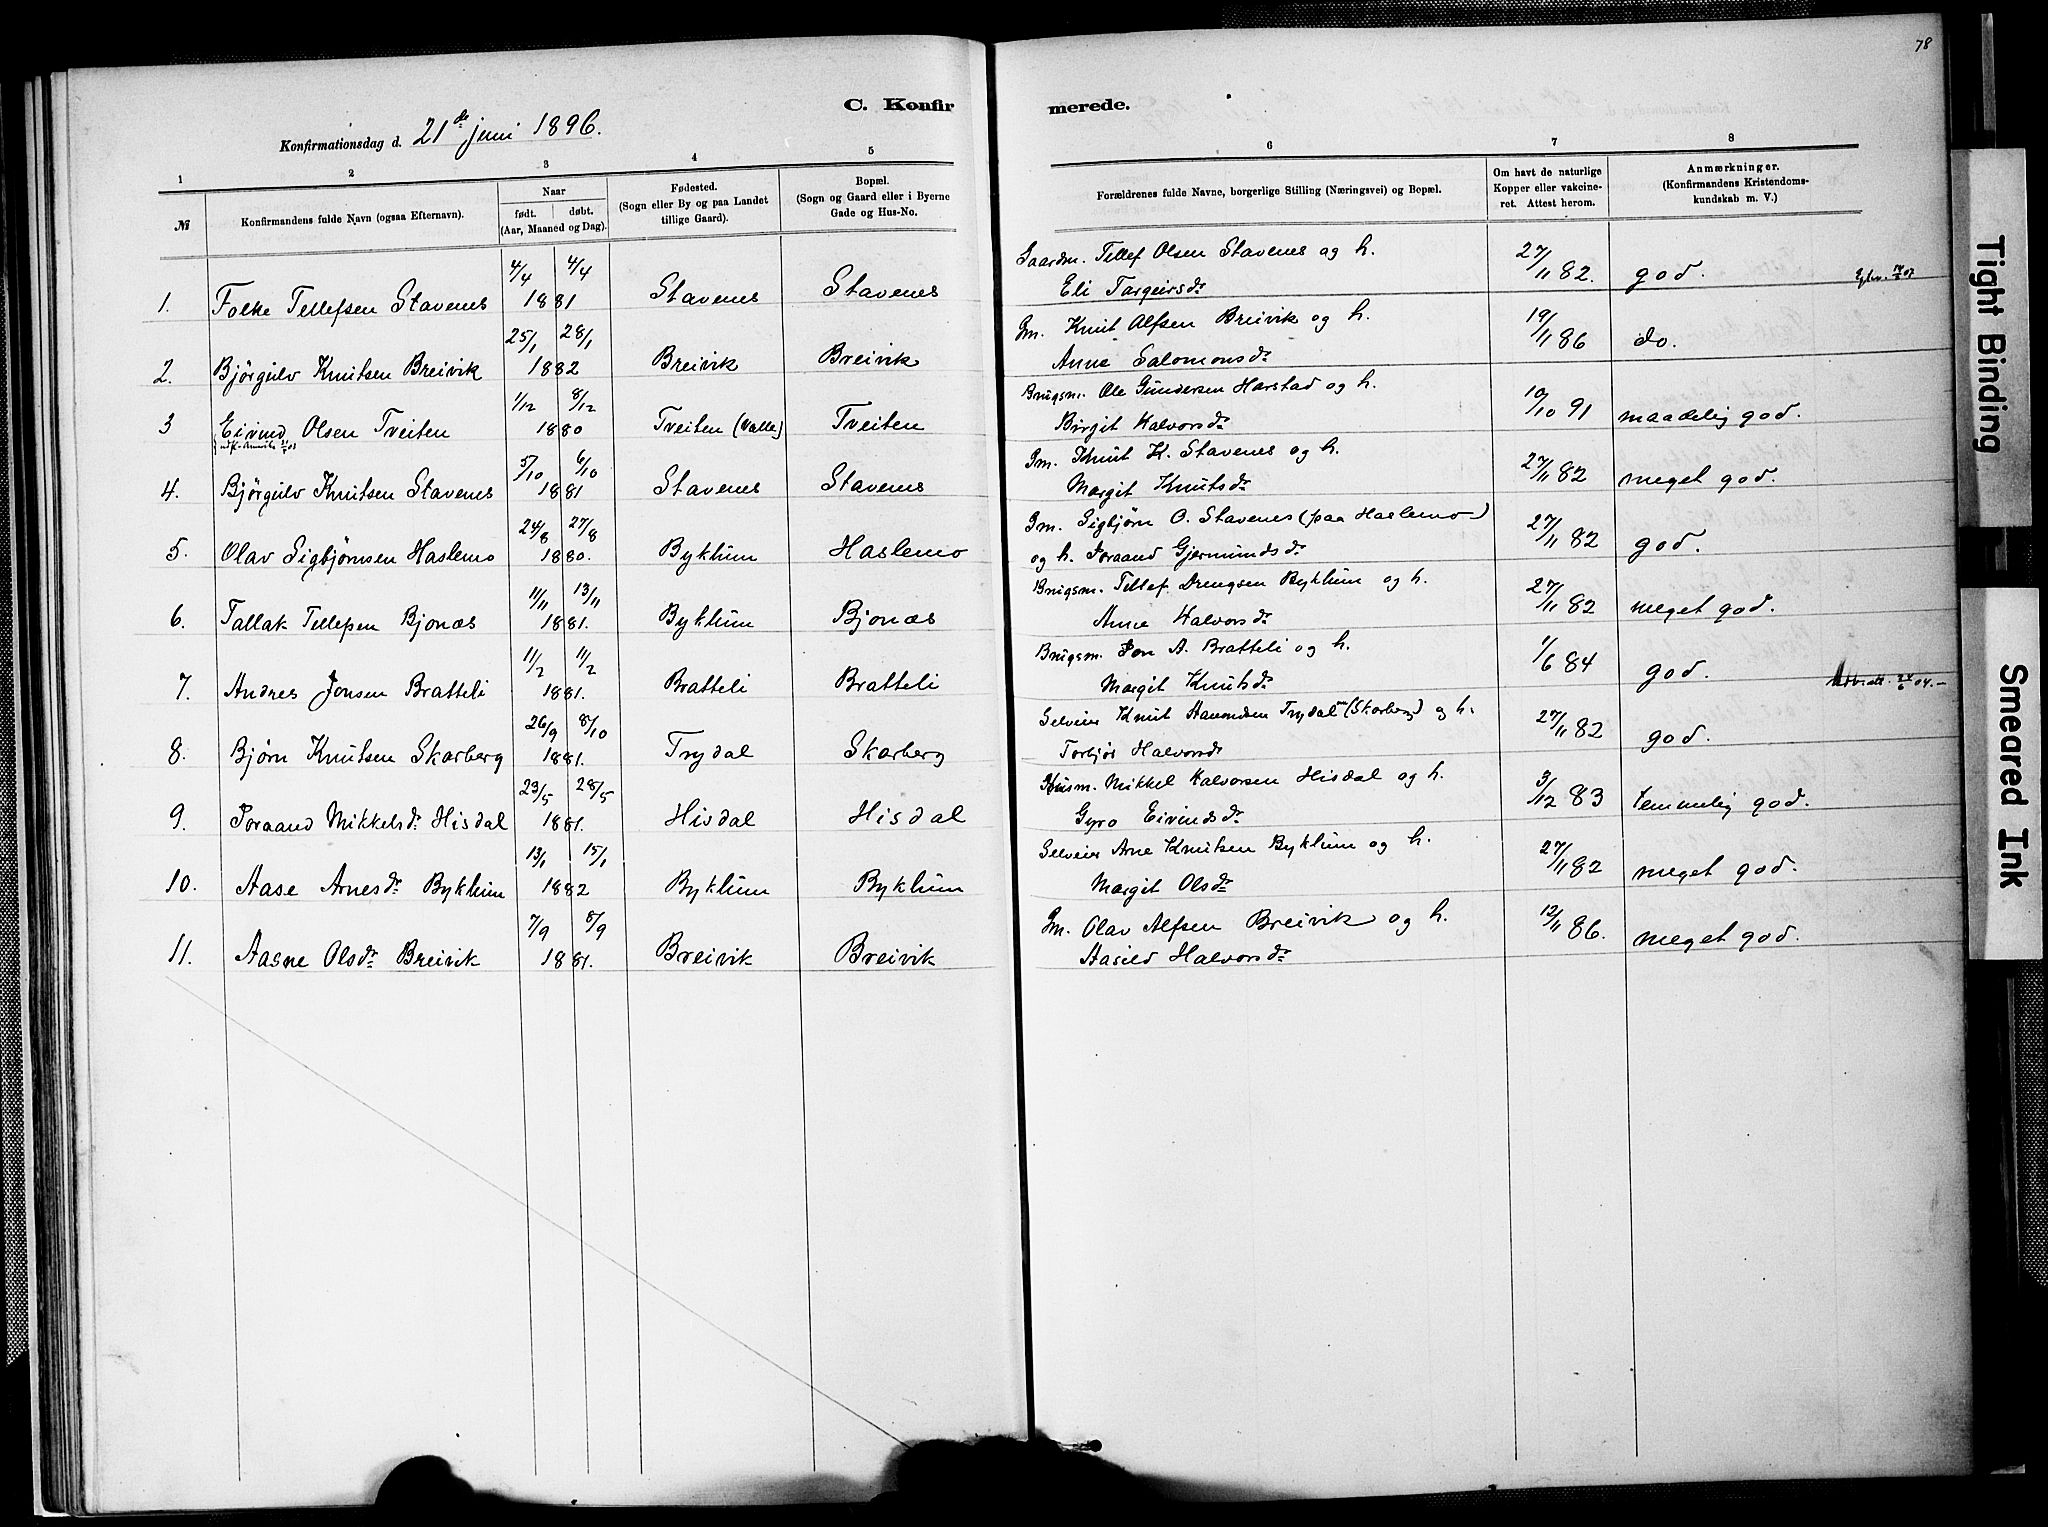 78
C. Konfirmerede.
Konfirmationsdag d. 21de juni 1896.
1 2 3 4 5 6 7 8
№ Konfirmandens fulde Navn (ogsaa Efternavn). Naar født. døbt. (Aar, Maaned og Dag). Fødested. (Sogn eller By og paa Landet tillige Gaard). Bopæl. (Sogn og Gaard eller i Byerne Gade og Hus-No. Forældrenes fulde Navne, borgerlige Stilling (Næringsvei) og Bopæl. Om havt de naturlige Kopper eller vakcineret. Attest herom. Anmærkninger. (Konfirmandens Kristendomskundskab m. V.)
1. Folke Tellefsen Stavenes 4/4 4/4 1881 Stavenes Stavenes Gaardm. Tellef Olsen Stavenes og h. Eli Targeirsdr 27/11 82. god.
2. Bjørgulv Knutsen Breivik 25/1 28/1 1882 Breivik Breivik Gm. Knut Alfsen Breivik og h. Anne Salomonsdr 19/1 86 do.
3 Eivind Olsen Tveiten 1/12 8/12 1880 Tveiten (Valle) Tveiten Brugsm. Ole Gundersen Harstad og h. Birgit Halvorsdr 10/10 91 maadelig god.
4. Bjørgulv Knutsen Stavenes 5/10 6/10 1881 Stavenes Stavenes Gm. Knut K. Stavenes og h. Margit Knutsdr 27/11 82 meget god.
5. Olav Sigbjørnsen Haslemo 24/8 27/8 1880. Byklum Haslemo Gm. Sigbjørn O. Stavenes (paa Haslemo) og h. Joraand Gjermundsdr 27/11 82 god.
6. Tallak Tellefsen Bjonæs 11/11 13/11 1881. Byklum Bjonæs Brugsm. Tellef Drengsen Byklum og h. Anne Halvorsdr 27/11 82 meget god.
7. Andres Jonsen Bratteli 11/2 11/2 1881. Bratteli Bratteli Brugsm. Jon A. Bratteli og h. Margit Knutsdr 1/6 84 god.
8. Bjørn Knutsen Skarberg 26/9 8/10 1881. Trydal Skarberg Selveier Knut Aanondsen Trydal (Skarberg) og h. Torbjør Halvorsdr 27/11 82 god.
9. Joraand Mikkelsdr Hisdal 23/5 28/5 1881. Hisdal Hisdal Husm. Mikkel Halvorsen Hisdal og h. Gyro Eivindsdr 3/12 83 temmelig god.
10. Aase Arnesdr Byklum 13/1 15/1 1882 Byklum Byklum Selveier Arne Knutsen Byklum og h. Margit Olsdr 27/11 82 meget god.
11. Aasne Olsdr Breivik 7/9 8/9 1881. Breivik Breivik Gm. Olav Alfsen Breivik og h. Aasild Halvorsdr 12/1 86. meget god.
Tight Binding
Smeared Ink